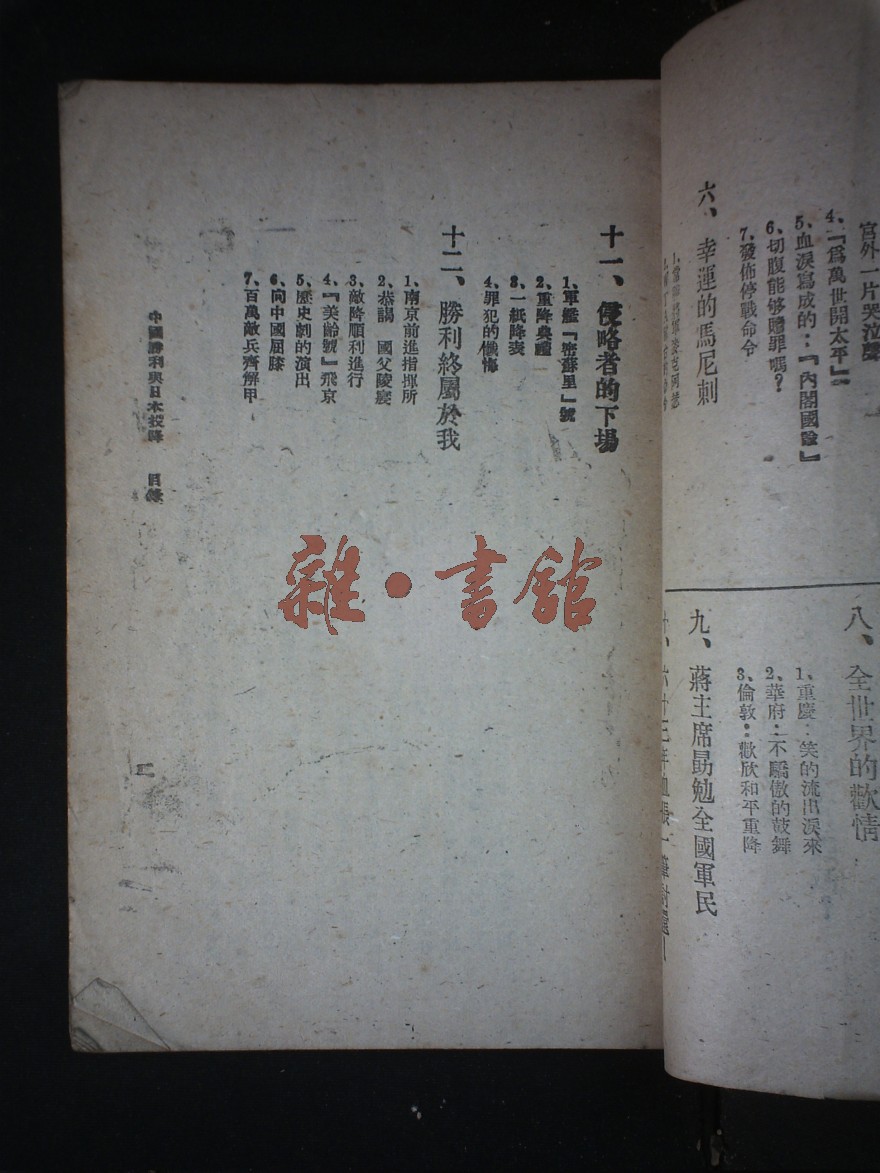 宮外一片哭泣聲
4、『爲萬世開太平』
5、血淚寫成的：『內閣國險』
6、切腹能够贖罪嗎？
7、發佈停戰命令
六、幸運的馬尼剌
八、全世界的歡情
1、重慶：笑的流出淚來
2、華府：不驕傲的鼓舞
3、倫敦：歡欣和平重降
九、蔣主席勗勉全國軍民
十一、侵略者的下場
1、軍艦『密蘇里』號
2、重降典禮
3、一紙降表
4、罪犯的懺悔
十二、勝利終屬於我
1、南京前進指揮所
2、恭謁　國父陵寢
3、敵降順利進行
4、『美齡號』飛京
5、歷史劇的演出
6、向中國屈膝
7、百萬敵兵齊解甲
中國勝利與日本投降　目錄
三
雜·書館